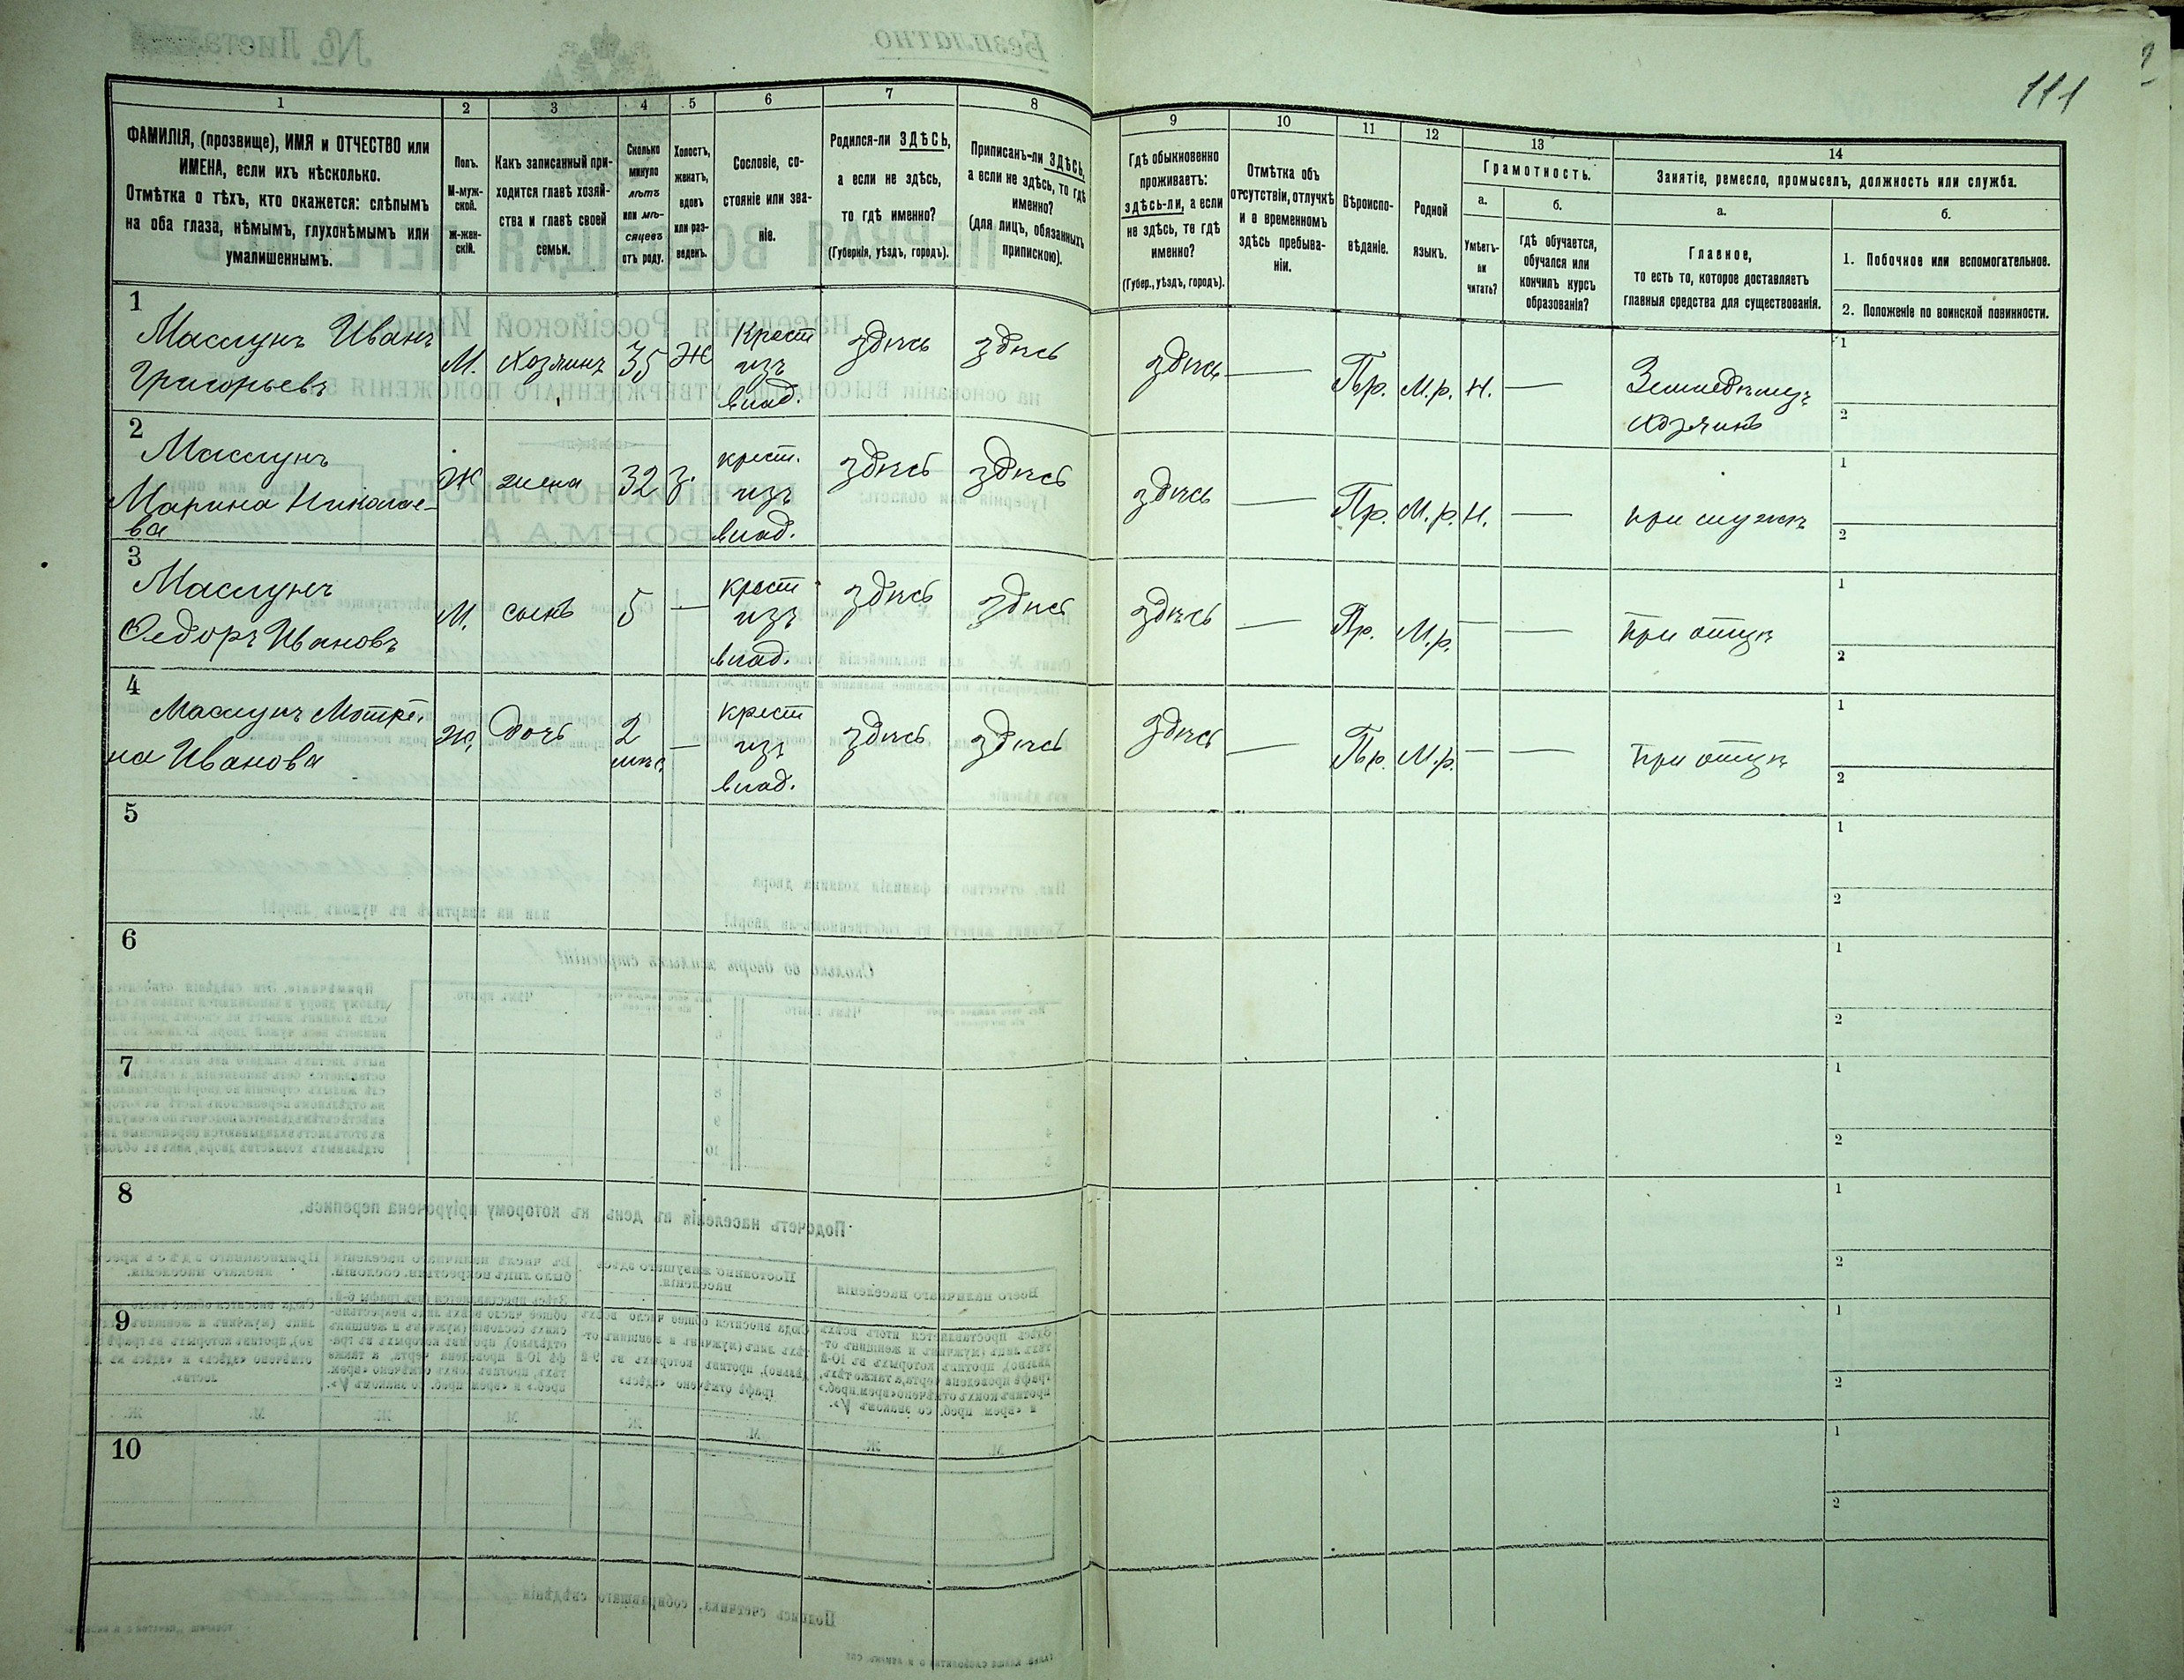 111
1
2
3
4
5
6
7
8
9
10
11
12
13
14
ФАМИЛІЯ, (прозвище), ИМЯ и ОТЧЕСТВО или
ИМЕНА, если ихъ нѣсколько.
Отмѣтка о тѣхъ, кто окажется: слѣпымъ
на оба глаза, нѣмымъ, глухонѣмымъ или
умалишеннымъ.
Полъ.
М-муж-
ской.
Ж-жен-
скій.
Какъ записанный при-
ходится главѣ хозяй-
ства и главѣ своей
семьи.
Сколько
минуло
лѣтъ
или мѣ-
сяцевъ
отъ роду.
Холостъ,
женатъ,
вдовъ
или раз-
веденъ.
Сословіе, со-
стояніе или зва-
ніе.
Родился-ли ЗДѢСЬ,
а если не здѣсь,
то гдѣ именно?
(Губернія, уѣздъ, городъ).
Приписанъ-ли ЗДѢСЬ,
а если не здѣсь, то гдѣ
именно?
(для лицъ, обязанныхъ
припискою).
Гдѣ обыкновенно
проживаетъ:
здѣсь-ли, а если
не здѣсь, то гдѣ
именно?
(Губер., уѣздъ, городъ).
Отмѣтка объ
отсутствіи, отлучкѣ
и о временномъ
здѣсь пребыва-
ніи.
Вѣроиспо-
вѣданіе.
Родной
языкъ.
Грамотность.
а.
Умѣетъ-
ли
читать?
б.
гдѣ обучается,
обучался или
кончилъ курсъ
образованія?
Занятіе, ремесло, промыселъ, должность или служба.
а.
Главное,
то есть то, которое доставляетъ
главныя средства для существованія.
б.
1. Побочное или вспомогательное.
2. Положеніе по воинской повинности.
1
Маслунъ Иванъ
Григорьевъ
М. хозяинъ 35 Ж
Крест
изъ
влад.
здѣсь здѣсь здѣсь — Пр. М.р. Н. —
Земледѣлец
хозяинъ
1
2
2
Маслунъ
Марина Николае-
ва
Ж жена 32 З.
крест.
изъ
влад.
здѣсь здѣсь здѣсь — Пр. М.р. Н. — при мужѣ
1
2
3
Маслунъ
Ѳедоръ Ивановъ
М. сынъ 5 —
крест
изъ
влад.
здѣсь здѣсь здѣсь — Пр. М.р. — — При отцѣ
1
2
4
Маслунъ Мотрё-
на Иванова
Ж. дочь 2
мѣс.
—
крест
изъ
влад.
здѣсь здѣсь здѣсь — Пр. М.р. — — При отцѣ
1
2
5
1
2
6
1
2
7
1
2
8
1
2
9
1
2
10
1
2